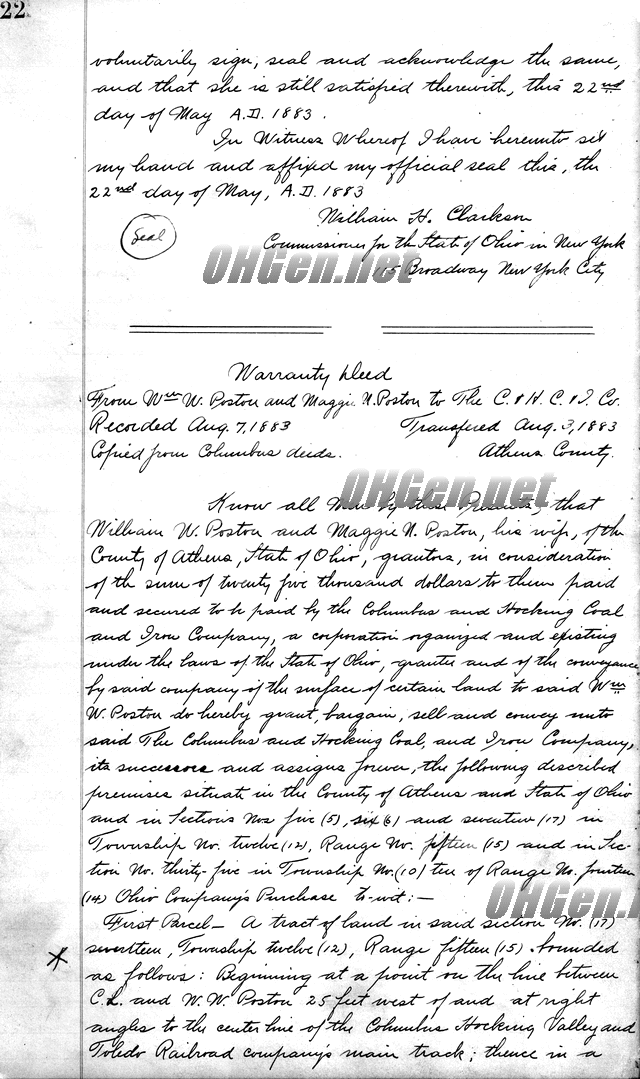 22
voluntarily sign, seal and acknowledge the same,
and that she is still satisfied therewith, this 22nd
day of May A.D. 1883.
In Witness Whereof I have hereunto set
my hand and affixed my official seal this, the
22nd day of May, A.D. 1883
William H. Clarkson
Seal
Commissioner for the State of Ohio in New York
OHGen.net
115 Broadway New York City
Warranty Deed
From Wm W. Poston and Maggie N. Poston to The C. & H. C. & I. Co.
Recorded Aug. 7, 1883 Transfered Aug. 3, 1883
Copied from Columbus deeds. Athens County.
OHGen.net
Know all Men by these Presents, that
William W. Poston and Maggie N. Poston, his wife, of the
County of Athens, State of Ohio, grantors, in consideration
of the sum of twenty five thousand dollars to them paid
and secured to be paid by the Columbus and Hocking Coal
and Iron Company, a corporation organized and existing
under the laws of the State of Ohio, grantee and of the conveyance
by said company of the surface of certain land to said Wm
W. Poston do hereby grant, bargain, sell and convey unto
said The Columbus and Hocking Coal, and Iron Company,
its successors and assigns forever, the following described
premises situate in the County of Athens and State of Ohio
and in Sections Nos five (5), six (6) and seventeen (17) in
Township No. twelve (12), Range No. fifteen (15) and in Sec-
tion No. thirty-five in Township No. (10) ten of Range No. fourteen
(14) Ohio Company's Purchase to-wit:—
OHGen.n
First Parcel— A tract of land in said section No. (17)
seventeen, Township twelve (12), Range fifteen (15) bounded
as follows: Beginning at a point on the line between
C.L. and W.W. Poston 25 feet west of and at right
angles to the center line of the Columbus Hocking Valley and
Toledo Railroad company's main track; thence in a